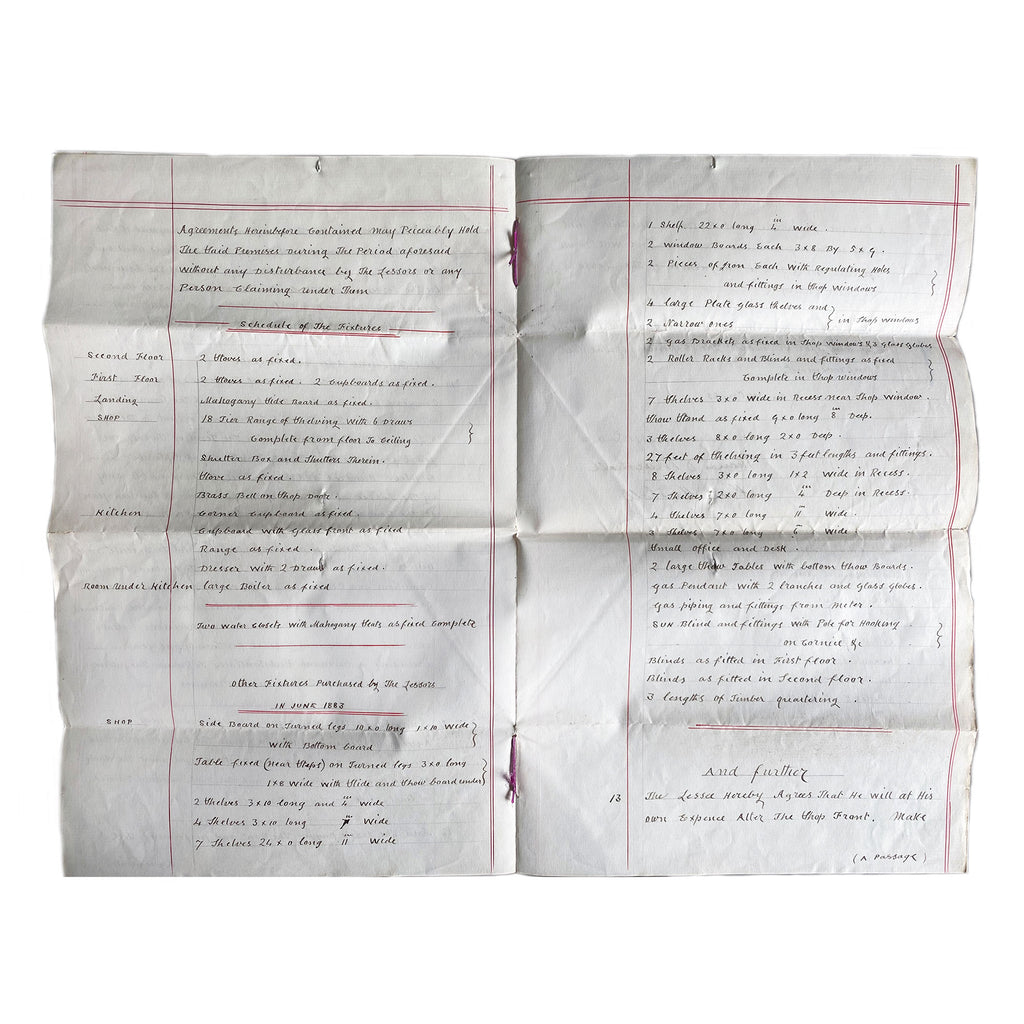 Agreements Hereinbefore Contained May Peiceably Hold
The Said Premises During The Period aforesaid
without any Disturbance by The Lessors or any
Person Claiming under Them
Schedule of The Fixtures
Second Floor 2 Stoves as fixed.
First Floor 2 Stoves as fixed. 2 Cupboards as fixed.
Landing Mahogany Side Board as fixed.
SHOP 18 Tier Range of Shelving with 6 Draws
Complete from floor To Ceiling
Shutter Box and Shutters Therein.
Stove as fixed.
Brass Bell on Shop Door.
Kitchen Corner Cupboard as fixed.
Cupboard with Glass front as fixed
Range as fixed.
Dresser with 2 Draws as fixed.
Room under Kitchen large Boiler as fixed
Two Water Closets with Mahogany Seats as fixed Complete
Other Fixtures Purchased by The Lessors
IN JUNE 1883
SHOP Side Board on Turned legs 10 x 0 long 1 x 10 Wide
with Bottom board
Table fixed (near Steps) on Turned legs 3 x 0 long
1 x 8 wide with Slide and Show board under
2 Shelves 3 x 10 long and 4 wide
4 Shelves 3 x 10 long Wide
7 Shelves 24 x 0 long 11 Wide
1 Shelf 22 x 0 long 4 ins wide.
2 Window Boards Each 3 x 8 By 5 x 9
2 Pieces of Iron Each With Regulating Holes
and fittings in Shop Windows
4 large Plate glass Shelves and
2 Narrow ones in Shop Windows
2 Gas Brackets as fixed in Shop Windows & 3 Glass Globes
2 Roller Racks and Blinds and fittings as fixed
Complete in Shop Windows
7 Shelves 3 x 0 Wide in Recess near Shop Window.
Show Stand as fixed 9 x 0 long 8 ins Deep.
3 Shelves 8 x 0 long 2 x 0 Deep.
27 feet of Shelving in 3 feet lengths and fittings.
8 Shelves 3 x 0 long 1 x 2 Wide in Recess.
7 Shelves 2 x 0 long 4 ins Deep in Recess.
4 Shelves 7 x 0 long 11 ins Wide.
3 Shelves 7 x 0 long 6 ins Wide
Small office and Desk.
2 large Show Tables with bottom Show Boards.
Gas Pendant with 2 branches and Glass Globes.
Gas piping and fittings from meter.
SUN Blind and fittings with Pole for Hooking
on Cornice &c
Blinds as fitted in First floor.
Blinds as fitted in Second floor.
3 lengths of Timber quartering.
And further
13 The Lessee Hereby Agrees That He will at His
own Expence Alter The Shop Front. Make
(A Passage)